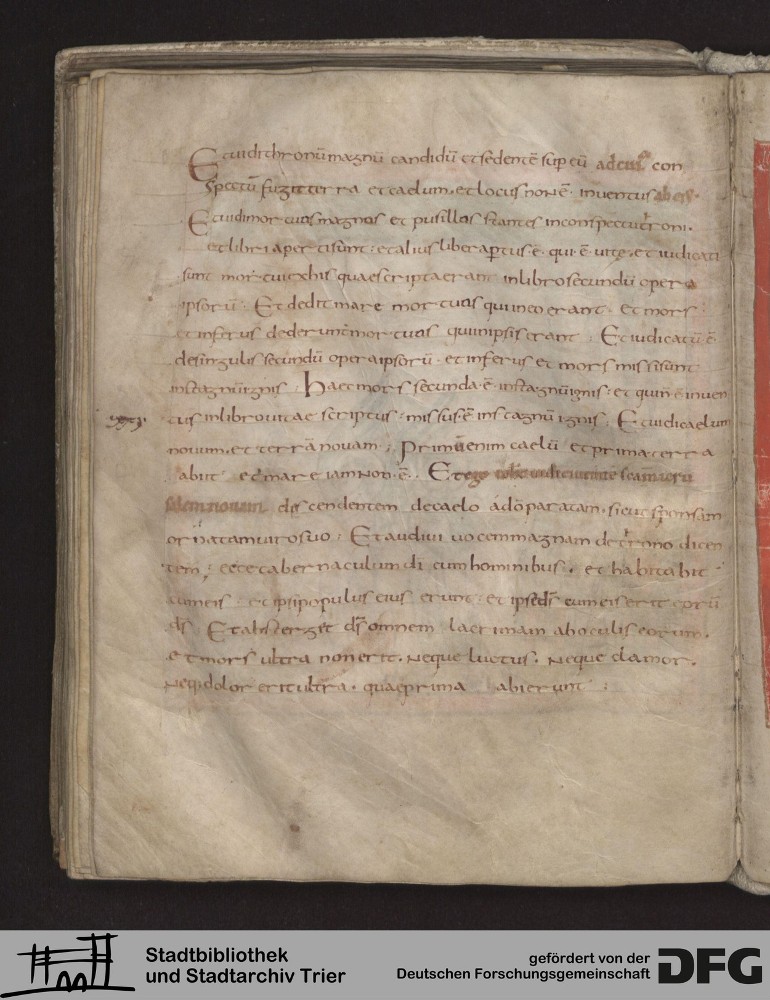 Et uidi thronū magnū candidū et sedentē sup eū a cuius con
spectu fugit terra et caelum. et locus non ē inuentus ab eis.
Et uidi mortuos magnos et pusillos stantes in conspectu troni.
et libri aperti sunt. et alius liber apertus ē. qui ē uitae. et iudicati
sunt mortui ex his quae scripta erant in libro secundū opera
ipsorū. Et dedit mare mortuos qui in eo erant. et mors
et inferus dederunt mortuos qui in ipsis erant. Et iudicatū ē
de singulis secundū opera ipsorū. et inferus et mors missi sunt
in stagnū ignis. Haec mors secunda ē. in stagnū ignis. et qui n̄ ē inuen
tus in libro uitae scriptus. missus ē in stagnū ignis. Et uidi caelum
nouum. et terrā nouam. Primū enim caelū et prima terra
abiit et mare iam non ē. Et ego
nouam descendentem de caelo a dō paratam. sicut sponsam
ornatam uiro suo. Et audiui uocem magnam de trono dicen
tem. ecce tabernaculum dī cum hominibus. et habitabit
cum eis. et ipsi populus eius erunt. et ipse ds̄ cum eis erit eorū
ds̄ Et absterget ds̄ omnem lacrimam ab oculis eorum.
et mors ultra non erit. neque luctus. neque clamor.
neq. dolor erit ultra. quae prima abierunt
Stadtbibliothek
und Stadtarchiv Trier
gefördert von der
Deutschen Forschungsgemeinschaft
DFG